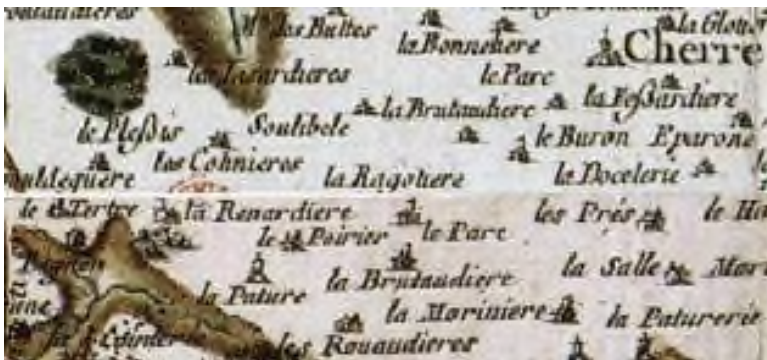 les Buttes
la Bonnetiere
Cherre
les Jasardieres
le Parc
la Brutaudiere
la Feßardiere
le Pleßis
Soulibele
le Buron
Eparone
les Cohnieres
la Ragotiere
la Docelerie
le Tertre
la Renardiere
les Prés
le Poirier
le Parc
la Brutaudiere
la Salle
la Pature
la Moriniere
la Paturerie
les Rouaudieres